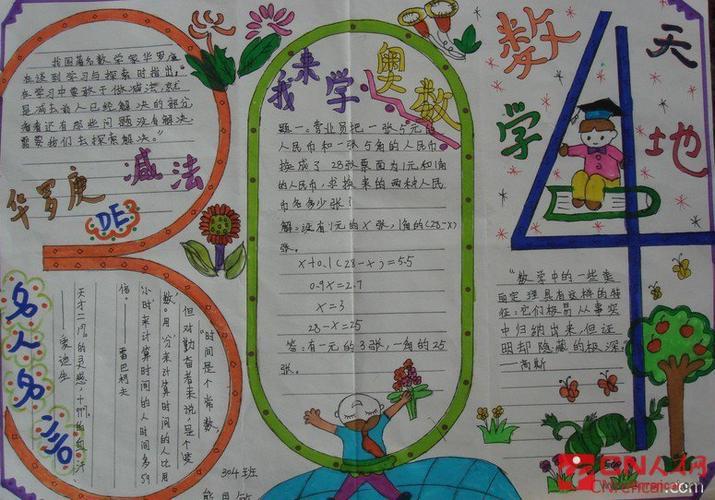 数学天地
我国著名数学家华罗庚
在谈到学习与探索时指出："
在学习中要敢于做减法，就
是减去前人已经解决的部分，
看看还有那些问题没有解决，
需要我们去探索解决。"
华罗庚
DE
减法
我来学奥数
题一：营业员把一张5元的
人民币和一张5角的人民币
换成了28张票面为1元和1角
的人民币，求换来的两种人民
币各多少张？
解：设有1元的x张，1角的(28-x)
张。
x+0.1(28-x)=5.5
0.9x=2.7
x=3
28-x=25
答：有一元的3张，一角的25
张。
"数学中的一些美
丽定理具有这样的特
征：它们极易从事实
中归纳出来，但证
明却隐藏的极深"
——高斯
名人名言
"时间是个常数，
但对勤奋者来说，是个变
数。用'分'来计算时间的人比用
'小时'来计算时间的人时间多59
倍。
——雷巴柯夫
天才=1%的灵感+99%的血汗。
——爱迪生
304班
CN人才网
.com